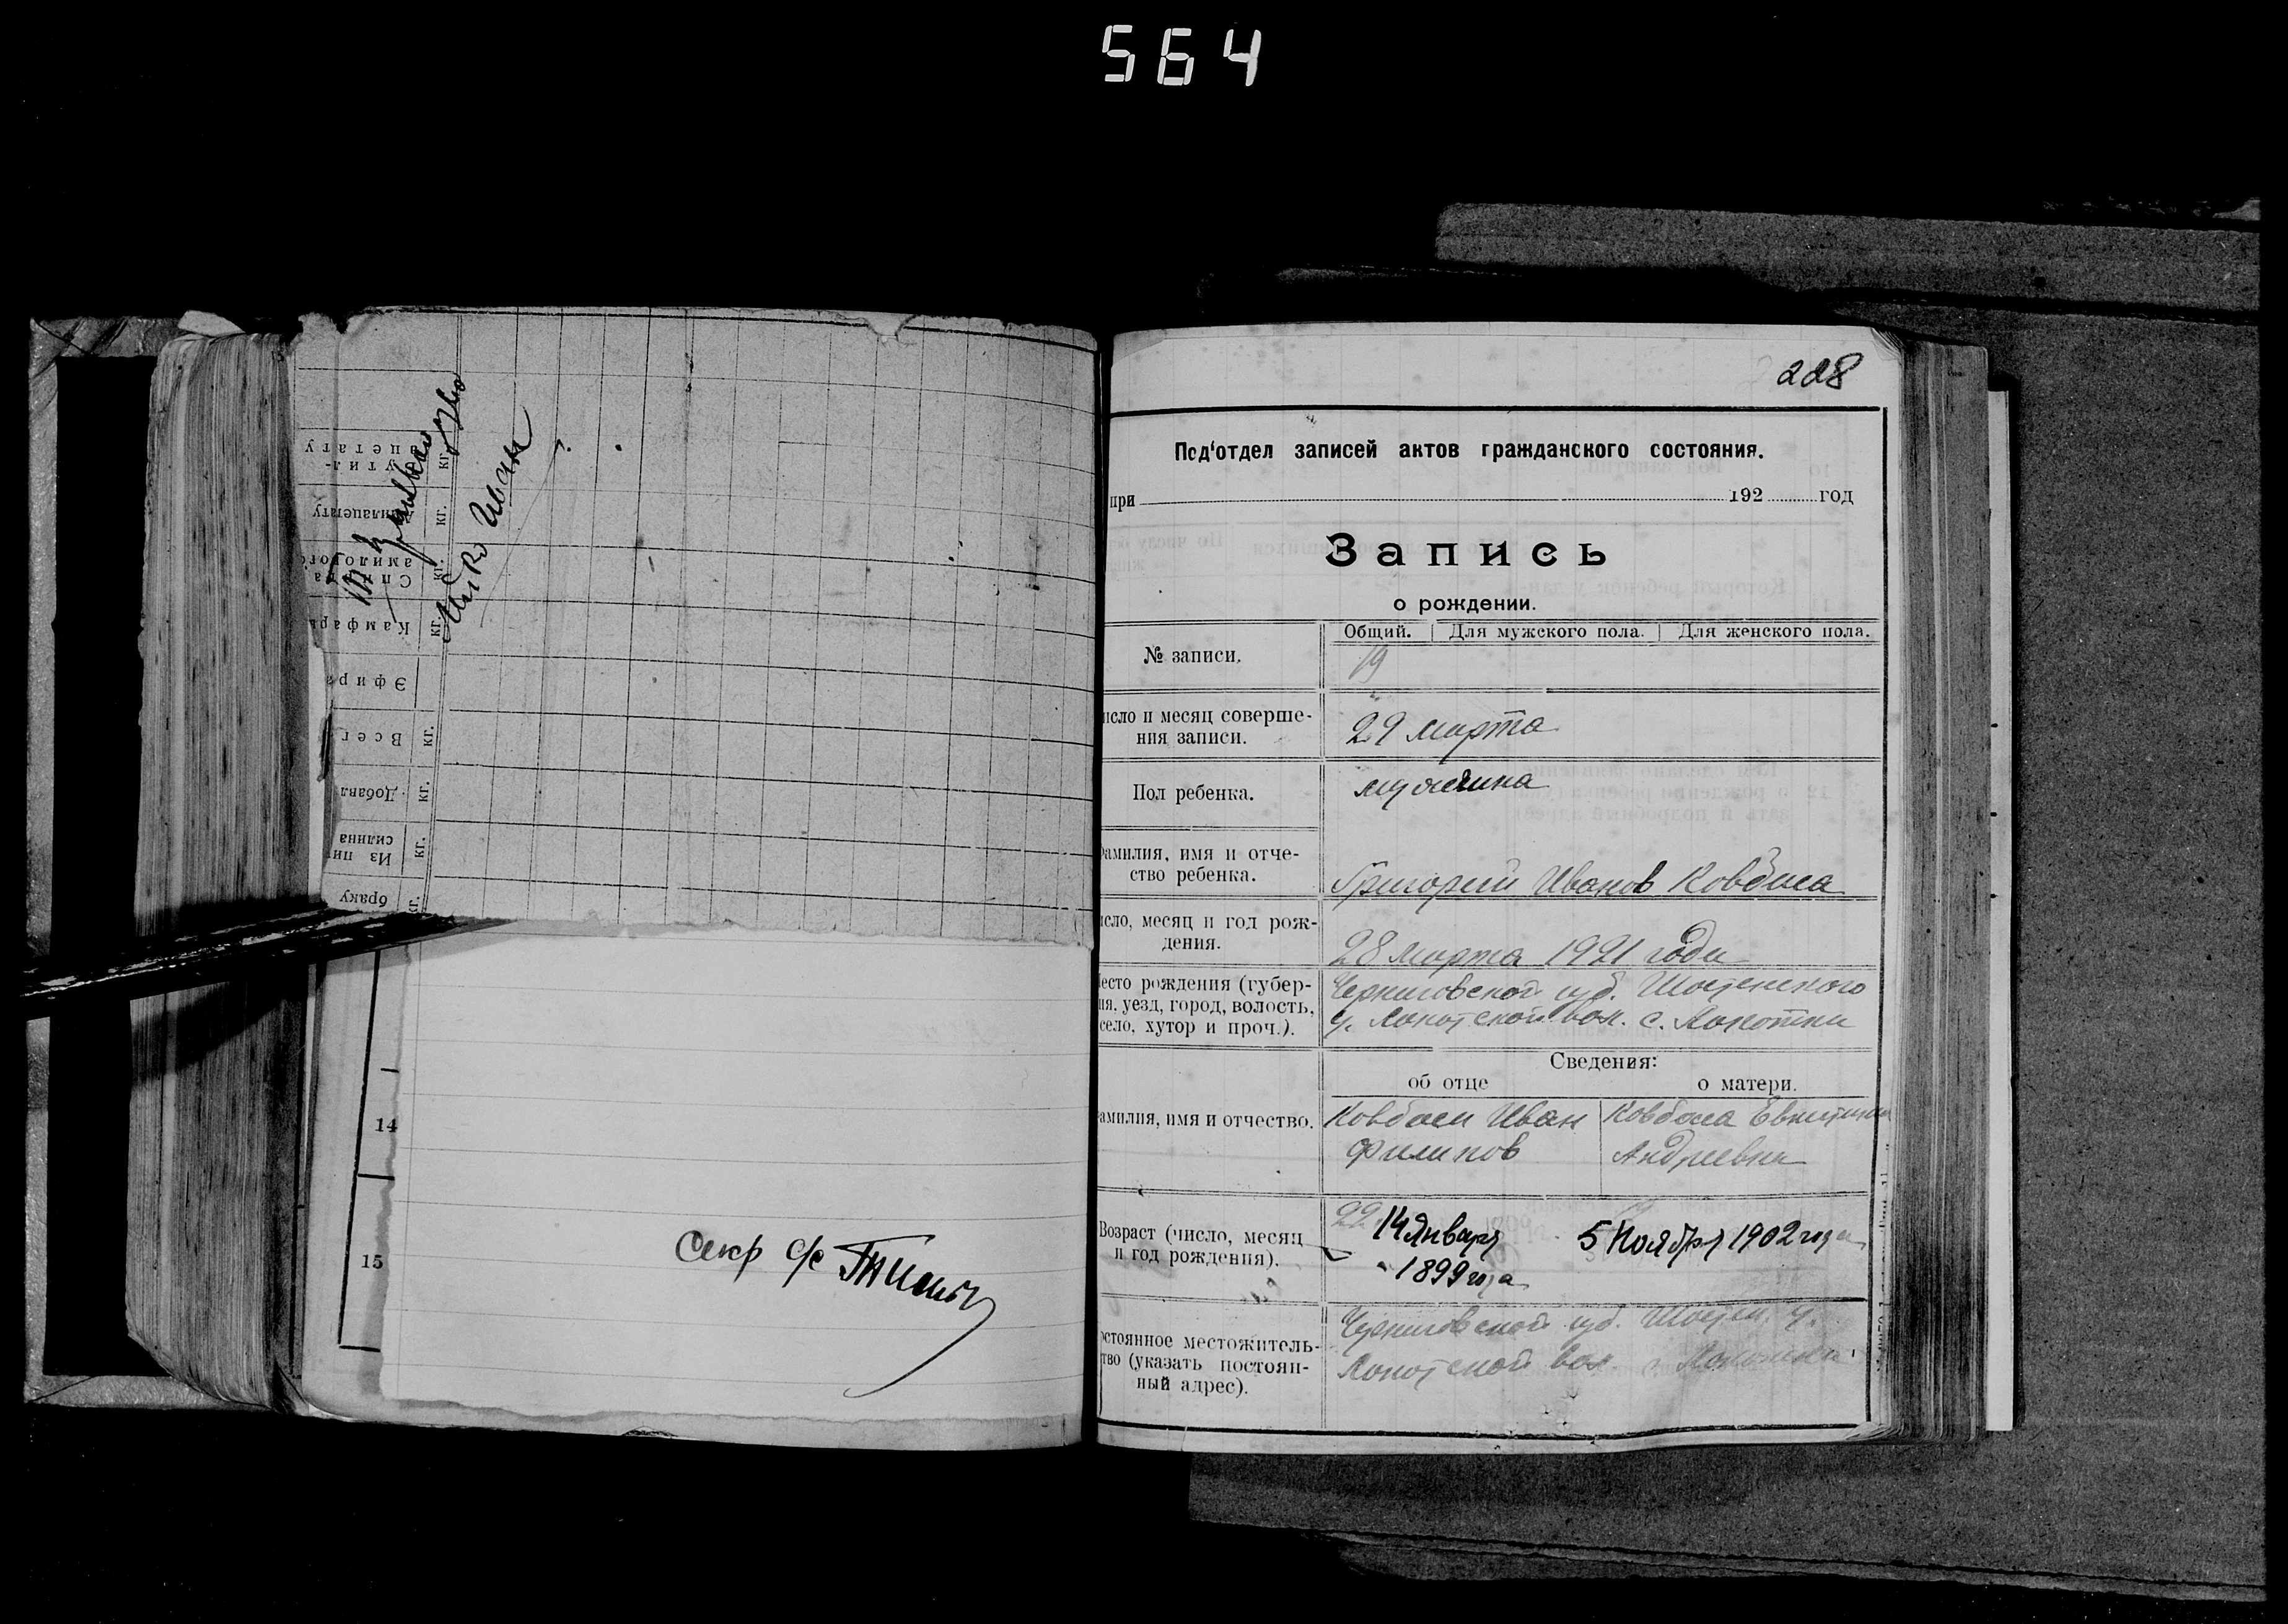 564
утил-
ацетату
кг.
Амилацетату
кг.
Спирта
амилового
кг.
Камфары
кг.
Эфира
Всег
кг.
Добавл.
кг.
Из пи
силина
кг.
браку
кг.
Иван
14
15
Секр
228
Под‘отдел записей актов гражданского состояния.
при 192 год
Запись
о рождении.
Общий. Для мужского пола. Для женского пола.
№ записи. 19
исло и месяц соверше-
ния записи.
29 марта
Пол ребенка. мужчина
амилия, имя и отче-
ство ребенка.
Григорий Иванов Ковбаса
исло, месяц и год рож-
дения.
28 марта 1921 года
есто рождения (губер-
ия, уезд, город, волость,
село, хутор и проч.).
Черниговской губ. Шостенского
у. Локотской вол. с. Локотки
Сведения:
об отце о матери.
амилия, имя и отчество.
Ковбаса Иван
Филипов
Ковбаса
Андреевна
Возраст (число, месяц
и год рождения).
22 14 Января
1899 года
5 Ноября 1902 года
остоянное местожитель-
тво (указать постоян-
ный адрес).
Черниговской губ. Шостен. у.
Локотской вол. с. Локотки